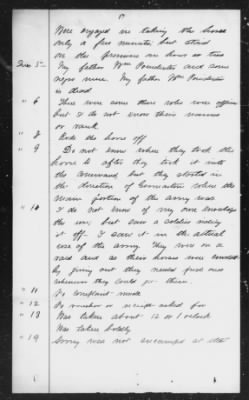 Were engaged in taking the horse
only a few minutes but staid
on the premises an hour or two
Ques 5 My father Wm Poindexter and some
negro men. My father Wm Poindexter
is dead
" 6 There were some there who were officers
but I do not know their names
or rank
" 8 Rode the horse off
" 9 Do not know where they took this
horse to after they took it into
the command but they started in
the direction of where the
main portion of the army was
" 10 I do not know of my own knowledge
the use, but saw a soldier riding
it off. I saw it in the actual
use of the army. They were on a
raid and as their horses were
by giving out they needed fresh ones
whenever they could get them.
" 11 No complaint made
" 12 No voucher or receipt asked for
" 13 Was taken about 12 or 1 o'clock
Was taken boldly
" 19 Army was not encamped at the